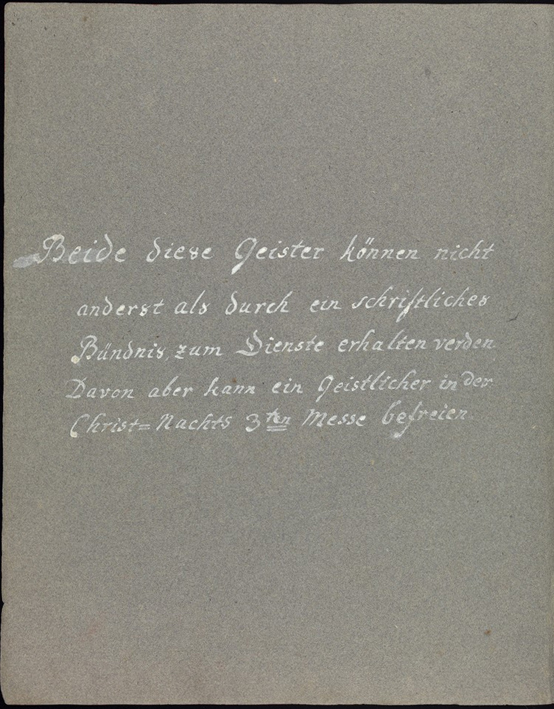 Beide diese Geister können nicht
anderst als durch ein schriftliches
Bündnis zum Dienste erhalten verden
Davon aber kann ein Geistlicher in der
Christ= Nachts 3ten Messe befreien